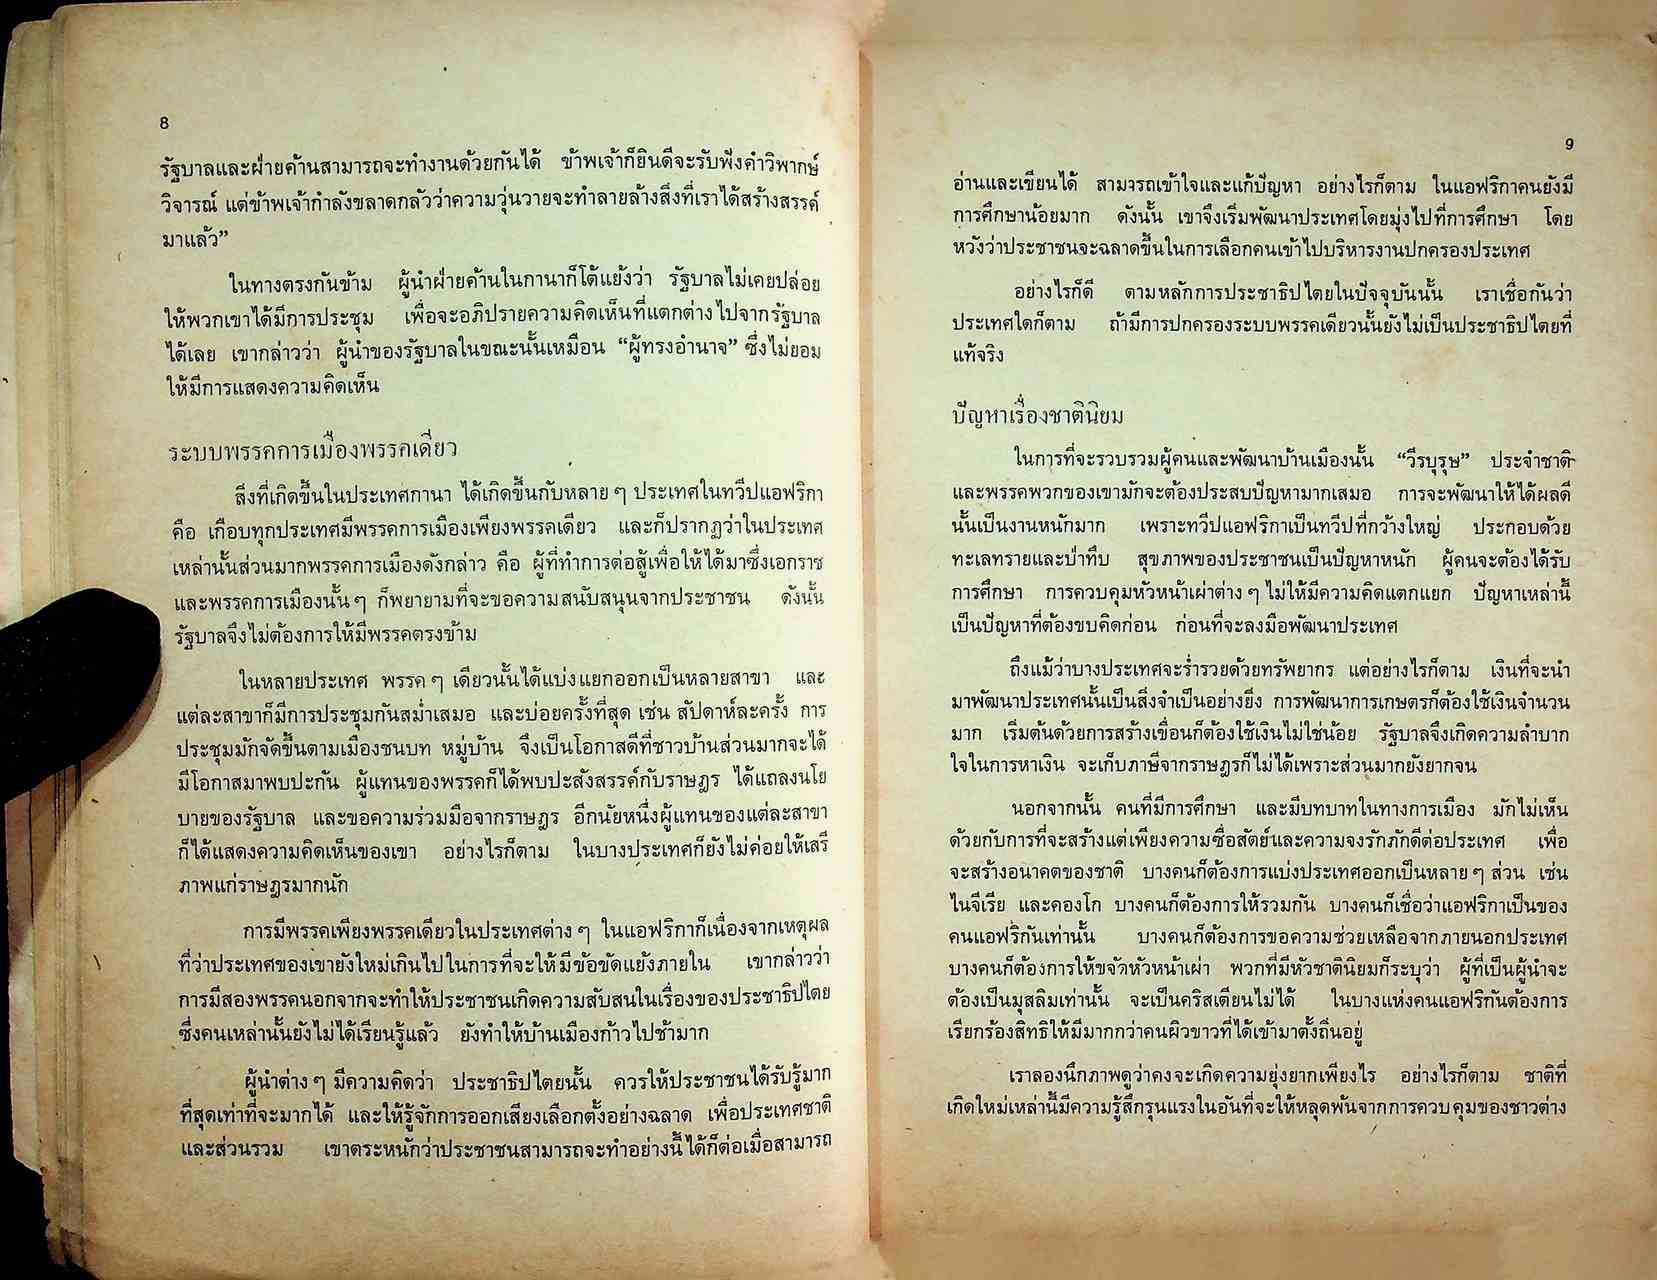 8
รัฐบาลและฝ่ายค้านสามารถจะทำงานด้วยกันได้ ข้าพเจ้าก็ยินดีจะรับฟังคำวิพากษ์
วิจารณ์ แต่ข้าพเจ้ากำลังขลาดกลัวว่าความวุ่นวายจะทำลายล้างสิ่งที่เราได้สร้างสรรค์
มาแล้ว”
ในทางตรงกันข้าม ผู้นำฝ่ายค้านในกานาก็โต้แย้งว่า รัฐบาลไม่เคยปล่อย
ให้พวกเขาได้มีการประชุม เพื่อจะอภิปรายความคิดเห็นที่แตกต่างไปจากรัฐบาล
ได้เลย เขากล่าวว่า ผู้นำของรัฐบาลในขณะนั้นเหมือน “ผู้ทรงอำนาจ” ซึ่งไม่ยอม
ให้มีการแสดงความคิดเห็น
ระบบพรรคการเมืองพรรคเดียว
สิ่งที่เกิดขึ้นในประเทศกานา ได้เกิดขึ้นกับหลาย ๆ ประเทศในทวีปแอฟริกา
คือ เกือบทุกประเทศมีพรรคการเมืองเพียงพรรคเดียว และก็ปรากฏว่าในประเทศ
เหล่านั้นส่วนมากพรรคการเมืองดังกล่าว คือ ผู้ที่ทำการต่อสู้เพื่อให้ได้มาซึ่งเอกราช
และพรรคการเมืองนั้น ๆ ก็พยายามที่จะขอความสนับสนุนจากประชาชน ดังนั้น
รัฐบาลจึงไม่ต้องการให้มีพรรคตรงข้าม
ในหลายประเทศ พรรค ๆ เดียวนั้นได้แบ่งแยกออกเป็นหลายสาขา และ
แต่ละสาขาก็มีการประชุมกันสม่ำเสมอ และบ่อยครั้งที่สุด เช่น สัปดาห์ละครั้ง การ
ประชุมมักจัดขึ้นตามเมืองชนบท หมู่บ้าน จึงเป็นโอกาสดีที่ชาวบ้านส่วนมากจะได้
มีโอกาสมาพบปะกัน ผู้แทนของพรรคก็ได้พบปะสังสรรค์กับราษฎร ได้แถลงนโย
บายของรัฐบาล และขอความร่วมมือจากราษฎร อีกนัยหนึ่งผู้แทนของแต่ละสาขา
ก็ได้แสดงความคิดเห็นของเขา อย่างไรก็ตาม ในบางประเทศก็ยังไม่ค่อยให้เสรี
ภาพแก่ราษฎรมากนัก
การมีพรรคเพียงพรรคเดียวในประเทศต่าง ๆ ในแอฟริกาก็เนื่องจากเหตุผล
ที่ว่าประเทศของเขายังใหม่เกินไปในการที่จะให้มีข้อขัดแย้งภายใน เขากล่าวว่า
การมีสองพรรคนอกจากจะทำให้ประชาชนเกิดความสับสนในเรื่องของประชาธิปไตย
ซึ่งคนเหล่านั้นยังไม่ได้เรียนรู้แล้ว ยังทำให้บ้านเมืองก้าวไปช้ามาก
ผู้นำต่าง ๆ มีความคิดว่า ประชาธิปไตยนั้น ควรให้ประชาชนได้รับรู้มาก
ที่สุดเท่าที่จะมากได้ และให้รู้จักการออกเสียงเลือกตั้งอย่างฉลาด เพื่อประเทศชาติ
และส่วนรวม เขาตระหนักว่าประชาชนสามารถจะทำอย่างนี้ได้ก็ต่อเมื่อสามารถ
9
อ่านและเขียนได้ สามารถเข้าใจและแก้ปัญหา อย่างไรก็ตาม ในแอฟริกาคนยังมี
การศึกษาน้อยมาก ดังนั้น เขาจึงเริ่มพัฒนาประเทศโดยมุ่งไปที่การศึกษา โดย
หวังว่าประชาชนจะฉลาดขึ้นในการเลือกคนเข้าไปบริหารงานปกครองประเทศ
อย่างไรก็ดี ตามหลักการประชาธิปไตยในปัจจุบันนั้น เราเชื่อกันว่า
ประเทศใดก็ตาม ถ้ามีการปกครองระบบพรรคเดียวนั้นยังไม่เป็นประชาธิปไตยที่
แท้จริง
ปัญหาเรื่องชาตินิยม
ในการที่จะรวบรวมผู้คนและพัฒนาบ้านเมืองนั้น “วีรบุรุษ” ประจำชาติ
และพรรคพวกของเขามักจะต้องประสบปัญหามากเสมอ การจะพัฒนาให้ได้ผลดี
นั้นเป็นงานหนักมาก เพราะทวีปแอฟริกาเป็นทวีปที่กว้างใหญ่ ประกอบด้วย
ทะเลทรายและป่าทึบ สุขภาพของประชาชนเป็นปัญหาหนัก ผู้คนจะต้องได้รับ
การศึกษา การควบคุมหัวหน้าเผ่าต่าง ๆ ไม่ให้มีความคิดแตกแยก ปัญหาเหล่านี้
เป็นปัญหาที่ต้องขบคิดก่อน ก่อนที่จะลงมือพัฒนาประเทศ
ถึงแม้ว่าบางประเทศจะร่ำรวยด้วยทรัพยากร แต่อย่างไรก็ตาม เงินที่จะนำ
มาพัฒนาประเทศนั้นเป็นสิ่งจำเป็นอย่างยิ่ง การพัฒนาการเกษตรก็ต้องใช้เงินจำนวน
มาก เริ่มต้นด้วยการสร้างเขื่อนก็ต้องใช้เงินไม่ใช่น้อย รัฐบาลจึงเกิดความลำบาก
ใจในการหาเงิน จะเก็บภาษีจากราษฎรก็ไม่ได้เพราะส่วนมากยังยากจน
นอกจากนั้น คนที่มีการศึกษา และมีบทบาทในทางการเมือง มักไม่เห็น
ด้วยกับการที่จะสร้างแต่เพียงความซื่อสัตย์และความจงรักภักดีต่อประเทศ เพื่อ
จะสร้างอนาคตของชาติ บางคนก็ต้องการแบ่งประเทศออกเป็นหลาย ๆ ส่วน เช่น
ไนจีเรีย และคองโก บางคนก็ต้องการให้รวมกัน บางคนก็เชื่อว่าแอฟริกาเป็นของ
คนแอฟริกันเท่านั้น บางคนก็ต้องการขอความช่วยเหลือจากภายนอกประเทศ
บางคนก็ต้องการให้ขจัดหัวหน้าเผ่า พวกที่มีหัวชาตินิยมก็ระบุว่า ผู้ที่เป็นผู้นำจะ
ต้องเป็นมุสลิมเท่านั้น จะเป็นคริสเตียนไม่ได้ ในบางแห่งคนแอฟริกันต้องการ
เรียกร้องสิทธิให้มีมากกว่าคนผิวขาวที่ได้เข้ามาตั้งถิ่นอยู่
เราลองนึกภาพดูว่าคงจะเกิดความยุ่งยากเพียงไร อย่างไรก็ตาม ชาติที่
เกิดใหม่เหล่านี้มีความรู้สึกรุนแรงในอันที่จะให้หลุดพ้นจากการควบคุมของชาวต่าง